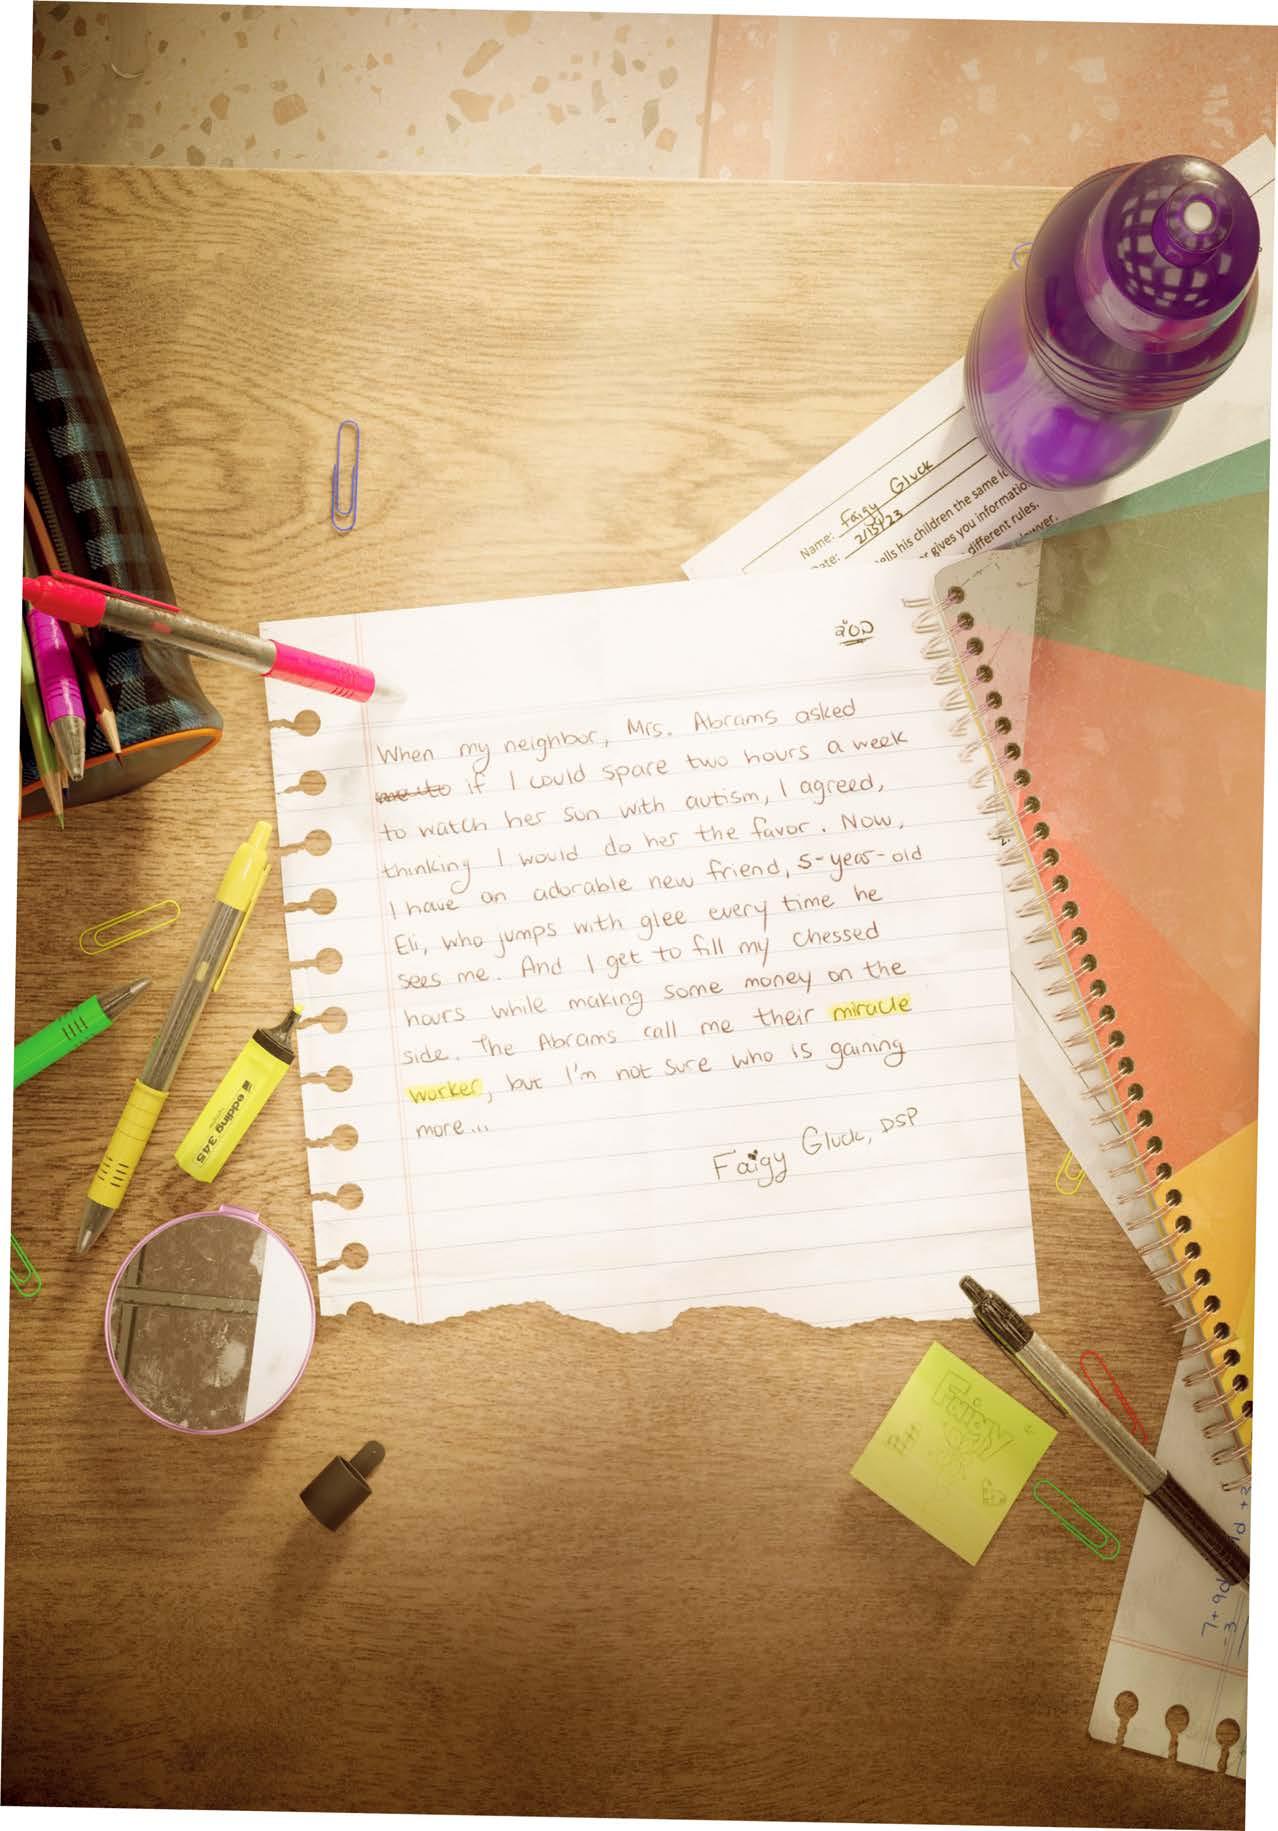 Name: Faigy Gluck
ate: 2/15/23
ells his children the same
r gives you informatio
different rules.
בס"ד
When my neighbor, Mrs. Abrams asked
if I could spare two hours a week
to watch her son with autism, I agreed,
thinking I would do her the favor. Now,
I have an adorable new friend, 5-year-old
Eli, who jumps with glee every time he
sees me. And I get to fill my chessed
hours while making some money on the
side. The Abrams call me their miracle
worker, but I'm not sure who is gaining
more...
Faigy Gluck, DSP
edding 345
Faigy
7+9d
-3